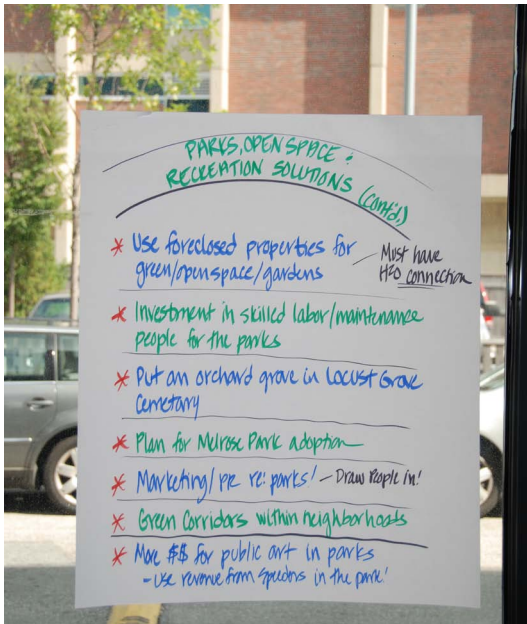 PARKS, OPEN SPACE &
RECREATION SOLUTIONS (cont'd.)
* Use foreclosed properties for
green/open space/gardens
Must have
H2O connection
* Investment in skilled labor/maintenance
people for the parks
* Put an orchard grove in Locust Grove
Cemetary
* Plan for Melrose Park adoption
* Marketing/PR re: parks! - Draw People in!
* Green Corridors within neighborhoods
* More $$ for public art in parks
- use revenue from speeders in the park!